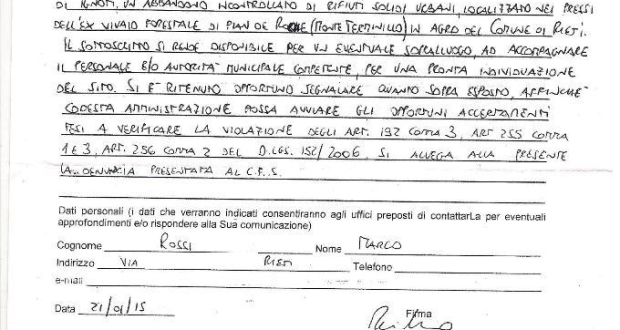 DI IGNOTI, UN ABBANDONO INCONTROLLATO DI RIFIUTI SOLIDI URBANI, LOCALIZZATO NEI PRESSI
DELL'EX VIVAIO FORESTALE DI PLAN DE ROCHE (MONTE TERMINILLO) IN AGRO DEL COMUNE DI RIETI.
IL SOTTOSCRITTO SI RENDE DISPONIBILE PER UN EVENTUALE SOPRALLUOGO, AD ACCOMPAGNARE
IL PERSONALE E/O AUTORITÀ MUNICIPALE COMPETENTE, PER UNA PRONTA INDIVIDUAZIONE
DEL SITO. SI È RITENUTO OPPORTUNO SEGNALARE QUANTO SOPRA ESPOSTO, AFFINCHÉ
CODESTA AMMINISTRAZIONE POSSA AVVIARE GLI OPPORTUNI ACCERTAMENTI
TESI A VERIFICARE LA VIOLAZIONE DEGLI ART. 192 COMMA 3, ART 255 COMMA
1 E 3, ART. 256 COMMA 2 DEL D.LGS. 152/2006. SI ALLEGA ALLA PRESENTE
LA DENUNCIA PRESENTATA AL C.F.S.
Dati personali (i dati che verranno indicati consentiranno agli uffici preposti di contattarLa per eventuali
approfondimenti e/o rispondere alla Sua comunicazione)
Cognome ROSSI Nome MARCO
Indirizzo VIA RIETI Telefono
e-mail
Data 21/01/15 Firma